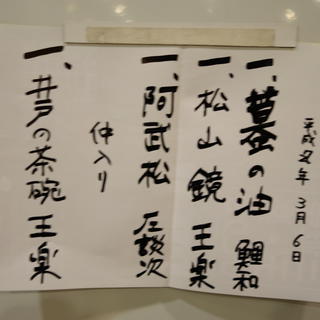 平成28年3月6日
一、蟇の油 鯉和
一、松山鏡 王楽
一、阿武松 左談次
仲入り
一、井戸の茶碗 王楽